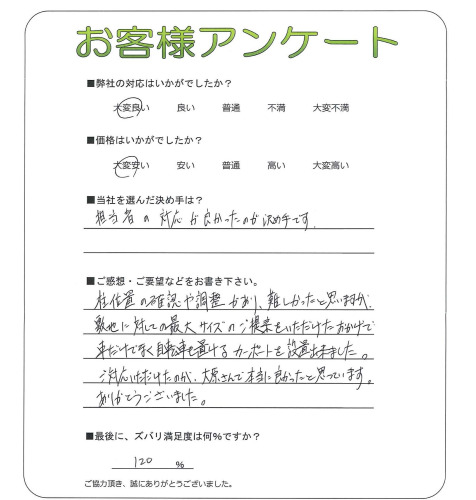 お客様アンケート
■弊社の対応はいかがでしたか？
大変良い 良い 普通 不満 大変不満
■価格はいかがでしたか？
大変安い 安い 普通 高い 大変高い
■当社を選んだ決め手は？
担当者の対応が良かったのが決め手です。
■ご感想・ご要望などをお書き下さい。
柱位置の確認や調整があり、難しかったと思いますが、
敷地に対しての最大サイズのご提案をいただけたおかげで
車だけでなく自転車も置けるカーポートを設置出来ました。
ご対応いただけたのが、大原さんで本当に良かったと思っています。
ありがとうございました。
■最後に、ズバリ満足度は何％ですか？
120 ％
ご協力頂き、誠にありがとうございました。